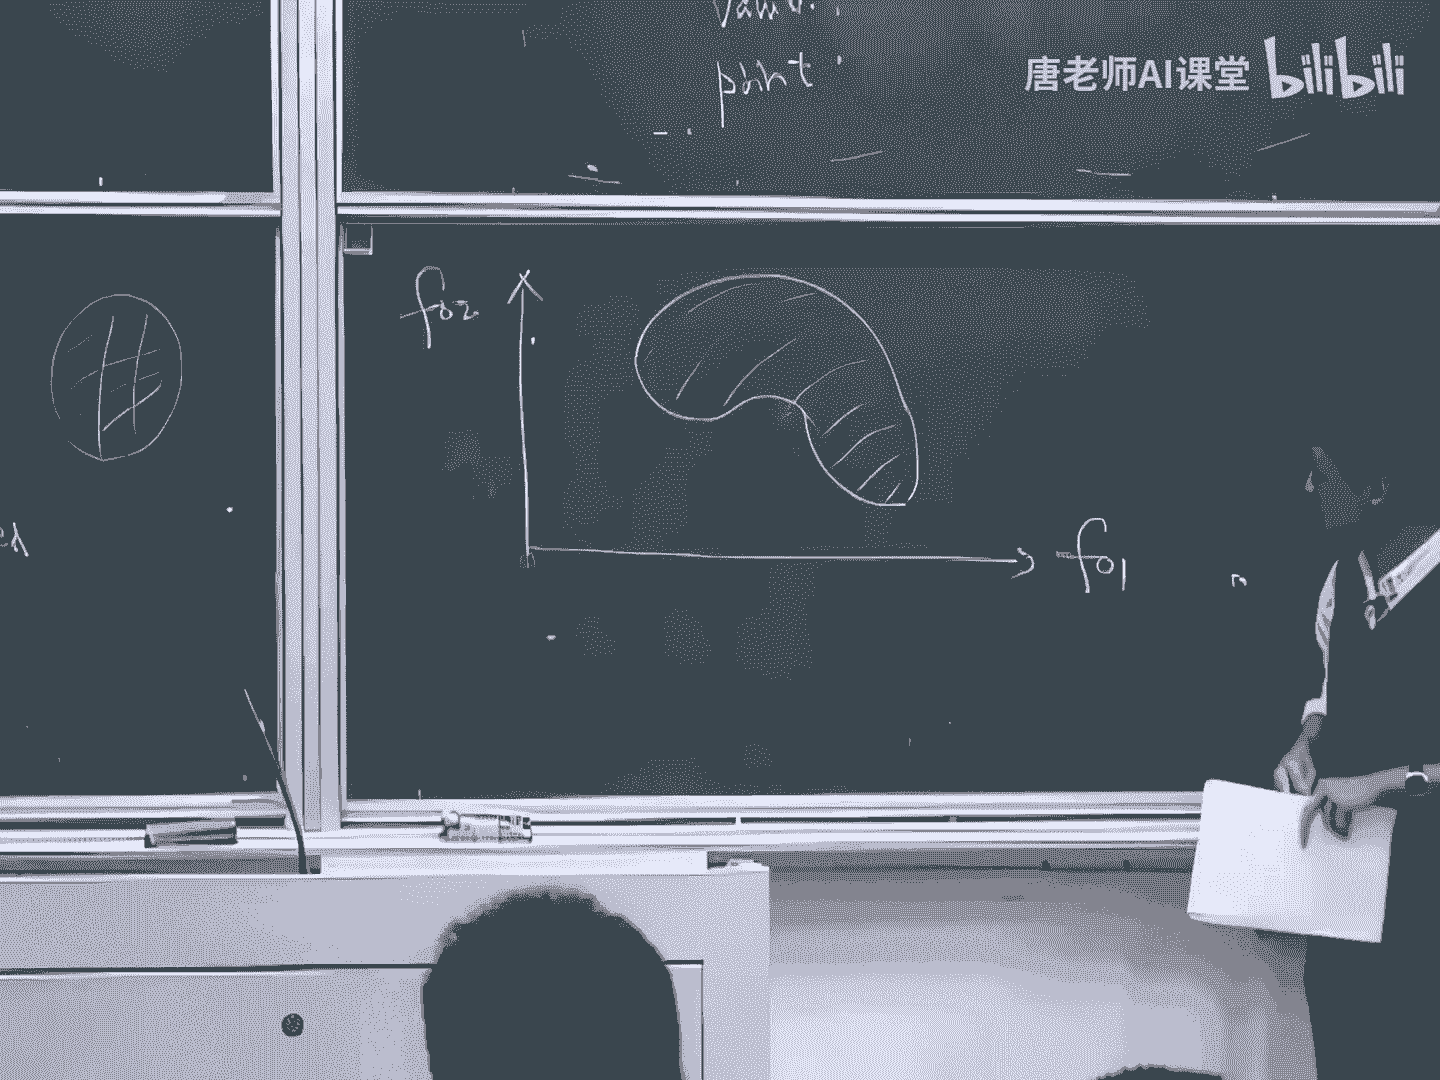 point
唐老师AI课堂 bilibili
f02
f01